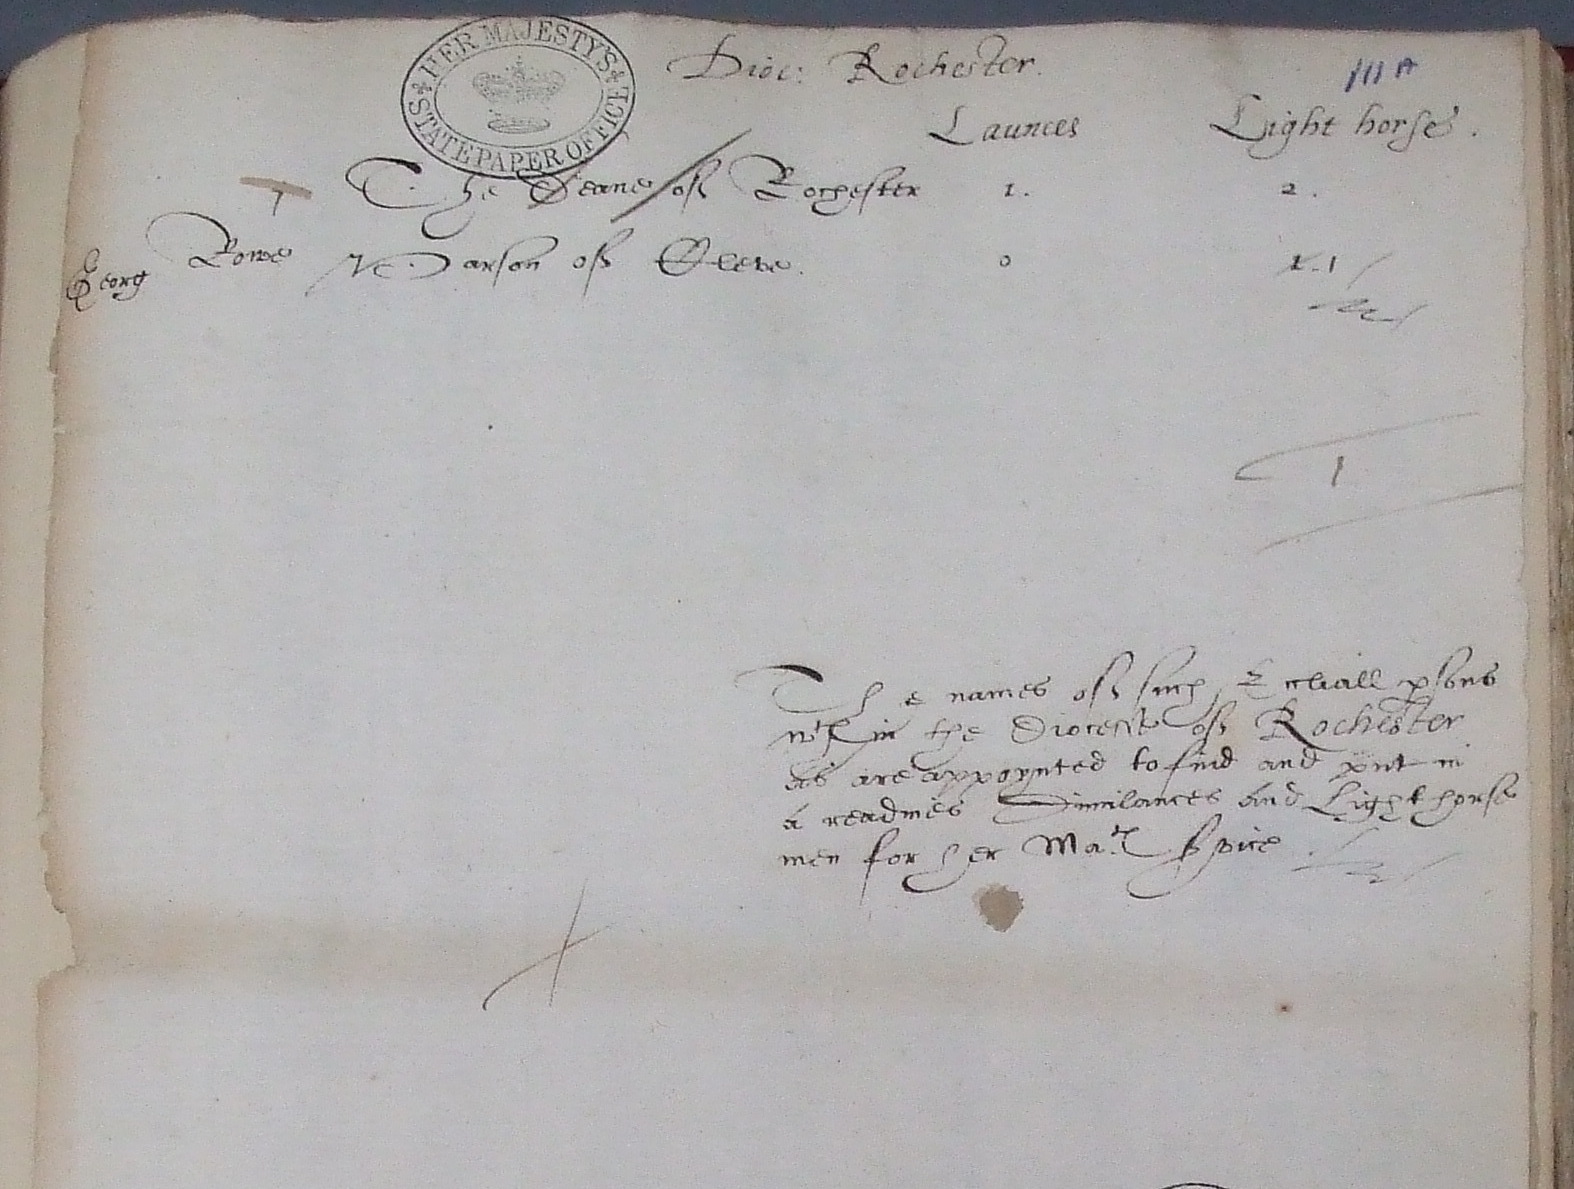 HER MAJESTY'S STATE PAPER OFFICE
Dioc: Rochester.
111 A
Launces Light horse.
The Deane off Rochester 1. 2.
Georg Rowe Parson off 0 1. 1
1
The names off such Eccliall psons
wth in the Diocesse off Rochester
as are appoynted to find and put in
a readines Dimilances and Light horse
men for her Matie Svice.